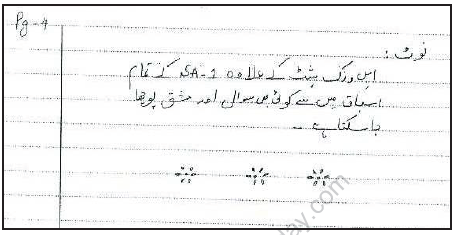 Pg-4
نوٹ:
اس ورک شیٹ کے علاوہ SA-1 کے تمام
اسباق میں سے کوئی بھی سوال اور مشق پوچھا
جا سکتا ہے۔
ay.com